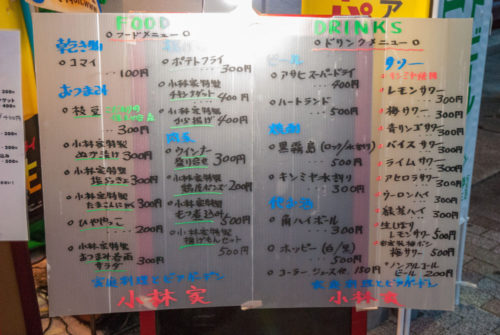 FOOD
○フードメニュー○
乾き物
○コマイ
100円
おつまみ
○枝豆
300円
○小林家特製
ぬか漬け 300円
○小林家特製
塩らっきょ 300円
○小林家特製
たまこんにゃく 300円
○ひややっこ
200円
○小林家特製
おつまみ春雨
サラダ 300円
○ポテトフライ
300円
○小林家特製
チキンナゲット 400円
○小林家特製
から揚げ 400円
○ウインナー
盛り合せ 300円
○小林家特製
200円
○小林家特製
もつ煮込み 500円
○小林家特製
揚げもんセット
500円
家庭料理とビアガーデン
小林家
DRINKS
○ドリンクメニュー○
ビール
○アサヒスーパードライ
400円
○ハートランド
500円
焼酎
○黒霧島(ロック/水割り)
500円
○キンミヤ水割り
300円
○角ハイボール
300円
○ホッピー(白/黒)
500円
○コーラ・ジュース他 150円
サワー
キンミヤ焼酎
○レモンサワー
300円
○梅サワー
300円
○青リンゴサワー
300円
○バイスサワー
300円
○ライムサワー
300円
○アセロラサワー
300円
○ウーロンハイ
300円
○緑茶ハイ
300円
○生しぼり
レモンサワー 500円
梅サワー 500円
○ノンアルコール
ビール 200円
家庭料理とビアガーデン
小林家